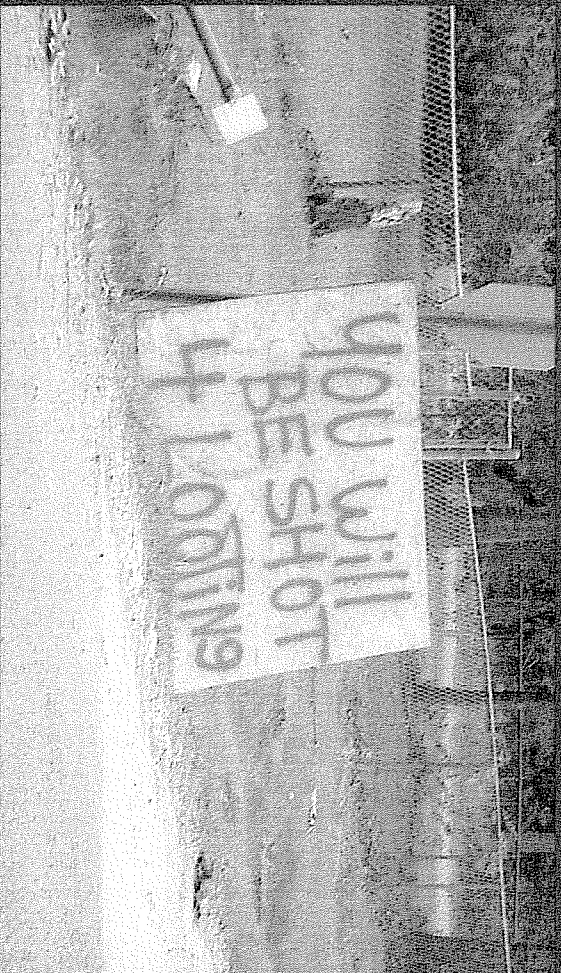 YOU Will
BE SHOT
4 LOOTiNg